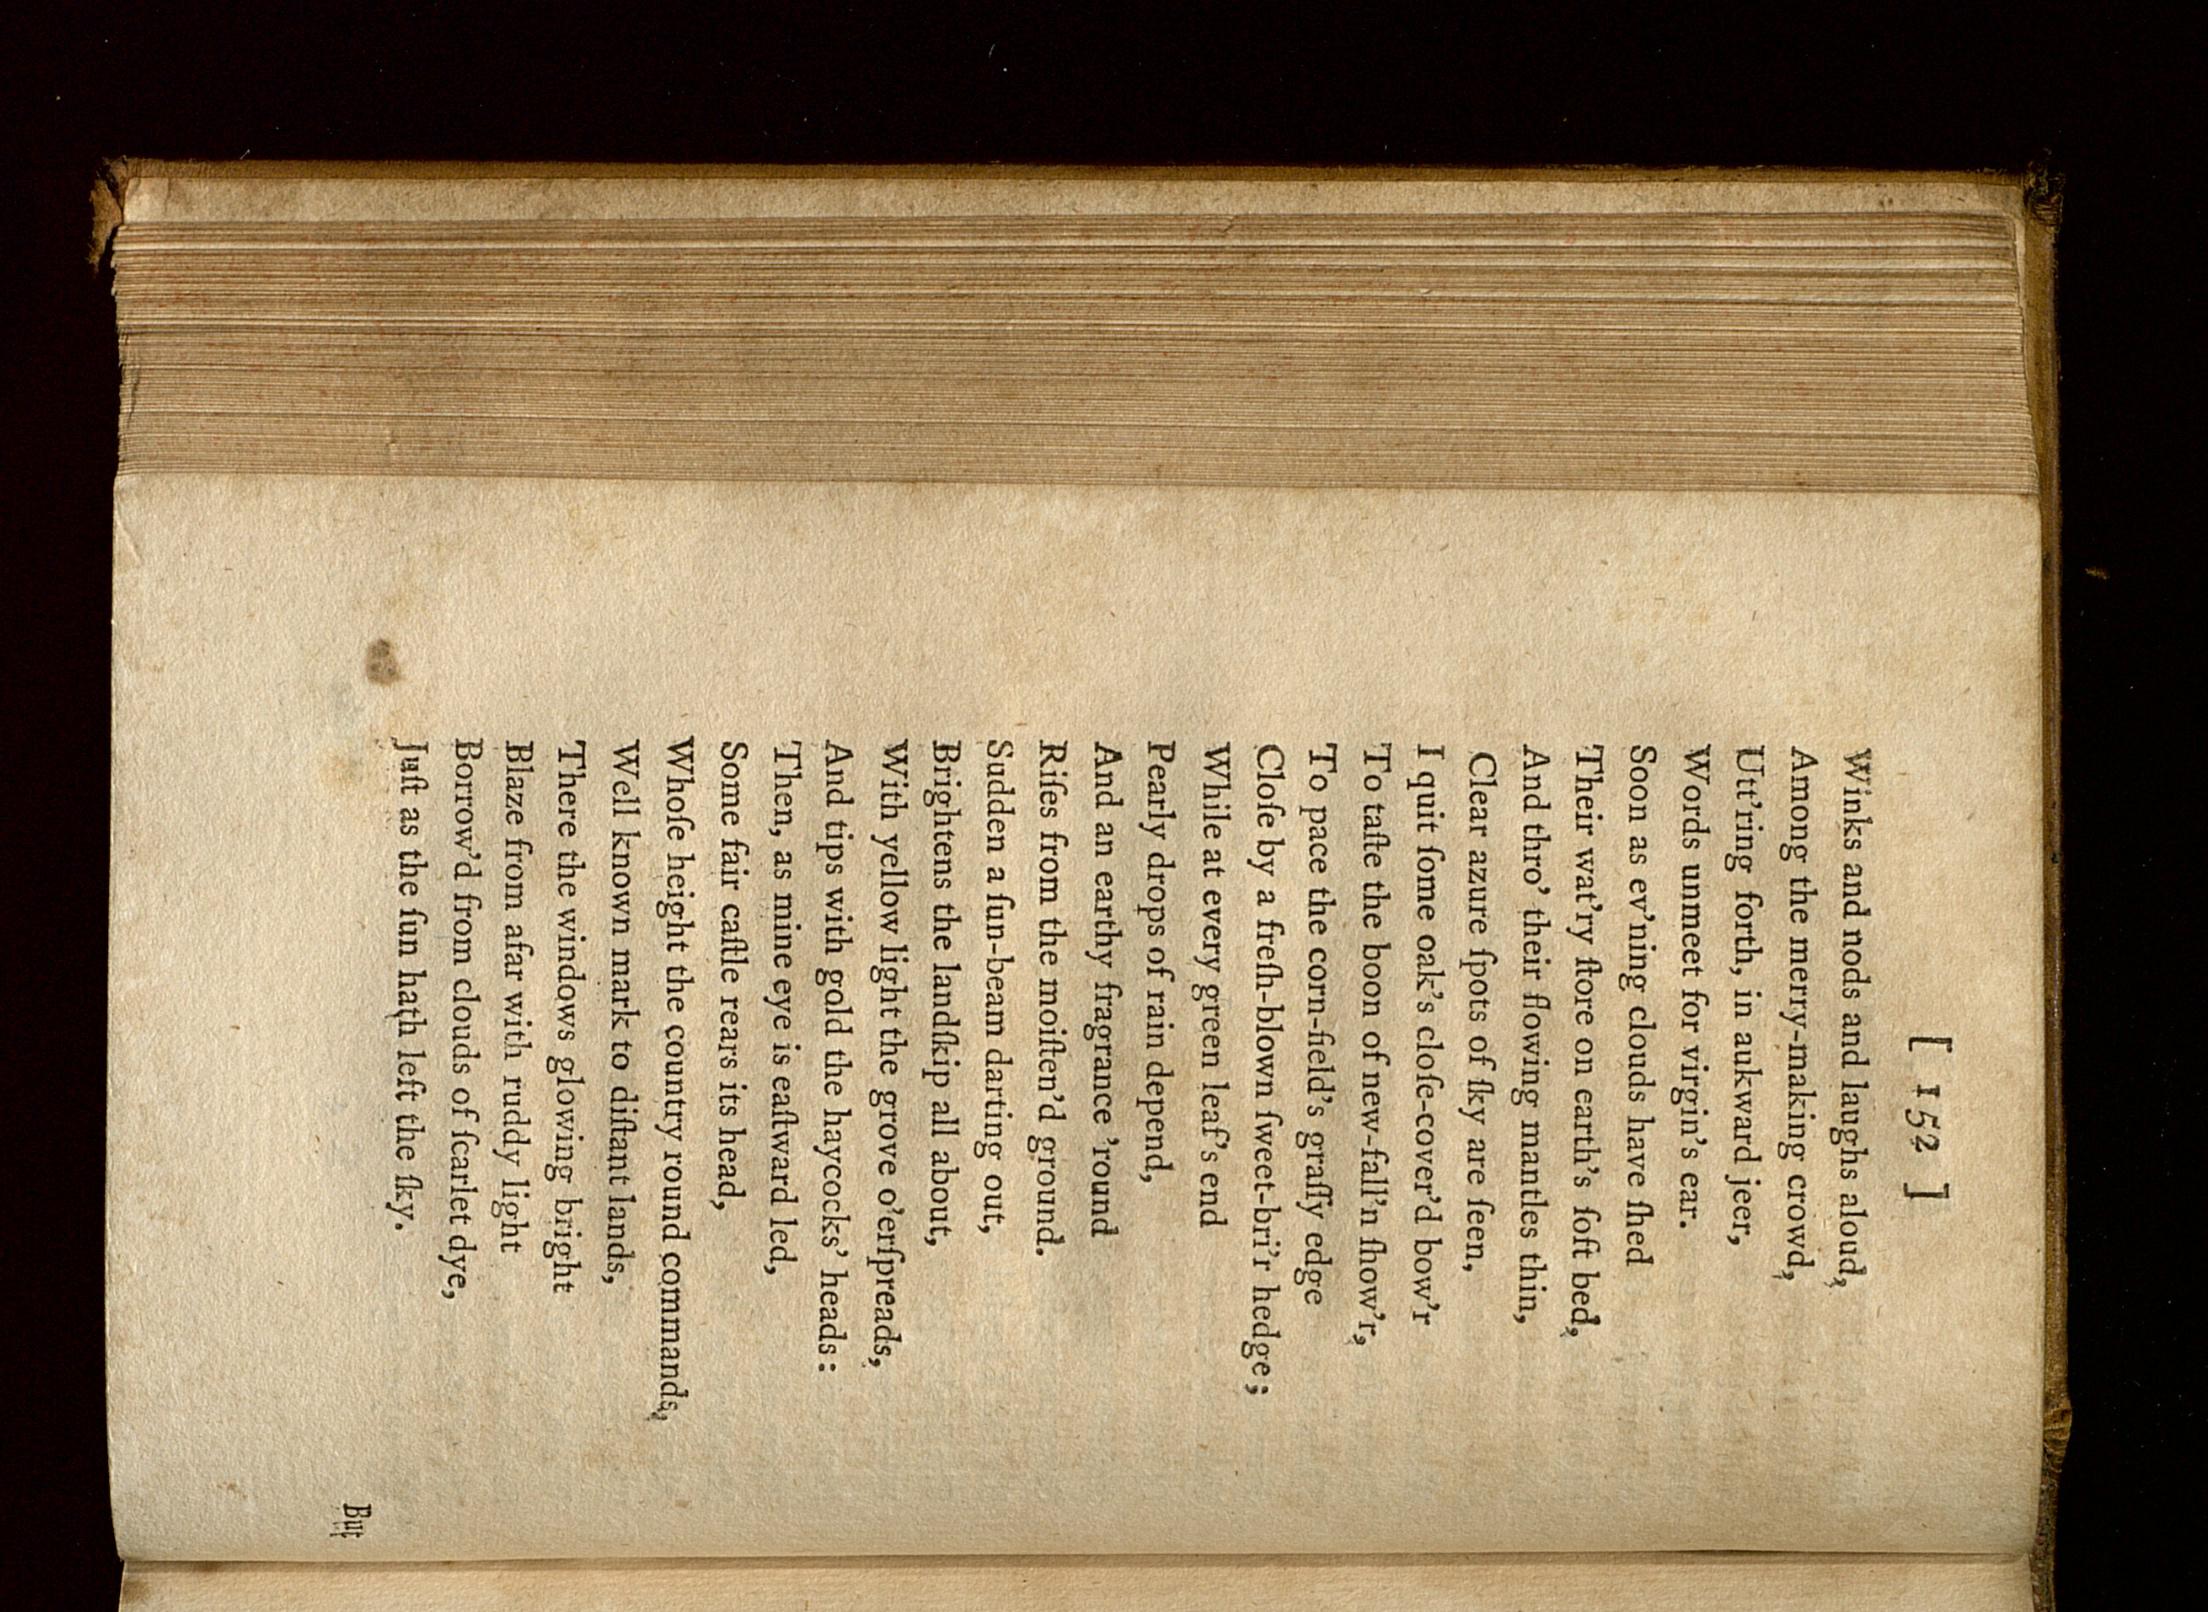 [ 152 ]
Winks and nods and laughs aloud,
Among the merry-making crowd,
Utt'ring forth, in aukward jeer,
Words unmeet for virgin's ear.
Soon as ev'ning clouds have ſhed
Their wat'ry ſtore on earth's ſoft bed,
And thro' their flowing mantles thin,
Clear azure ſpots of ſky are ſeen,
I quit ſome oak's cloſe-cover'd bow'r
To taſte the boon of new-fall'n ſhow'r,
To pace the corn-field's graſſy edge
Cloſe by a freſh-blown ſweet-bri'r hedge;
While at every green leaf's end
Pearly drops of rain depend,
And an earthy fragrance 'round
Riſes from the moiſten'd ground.
Sudden a ſun-beam darting out,
Brightens the landſkip all about,
With yellow light the grove o'erſpreads,
And tips with gold the haycocks' heads:
Then, as mine eye is eaſtward led,
Some fair caſtle rears its head,
Whoſe height the country round commands,
Well known mark to diſtant lands,
There the windows glowing bright
Blaze from afar with ruddy light
Borrow'd from clouds of ſcarlet dye,
Juſt as the ſun hath left the ſky.
But